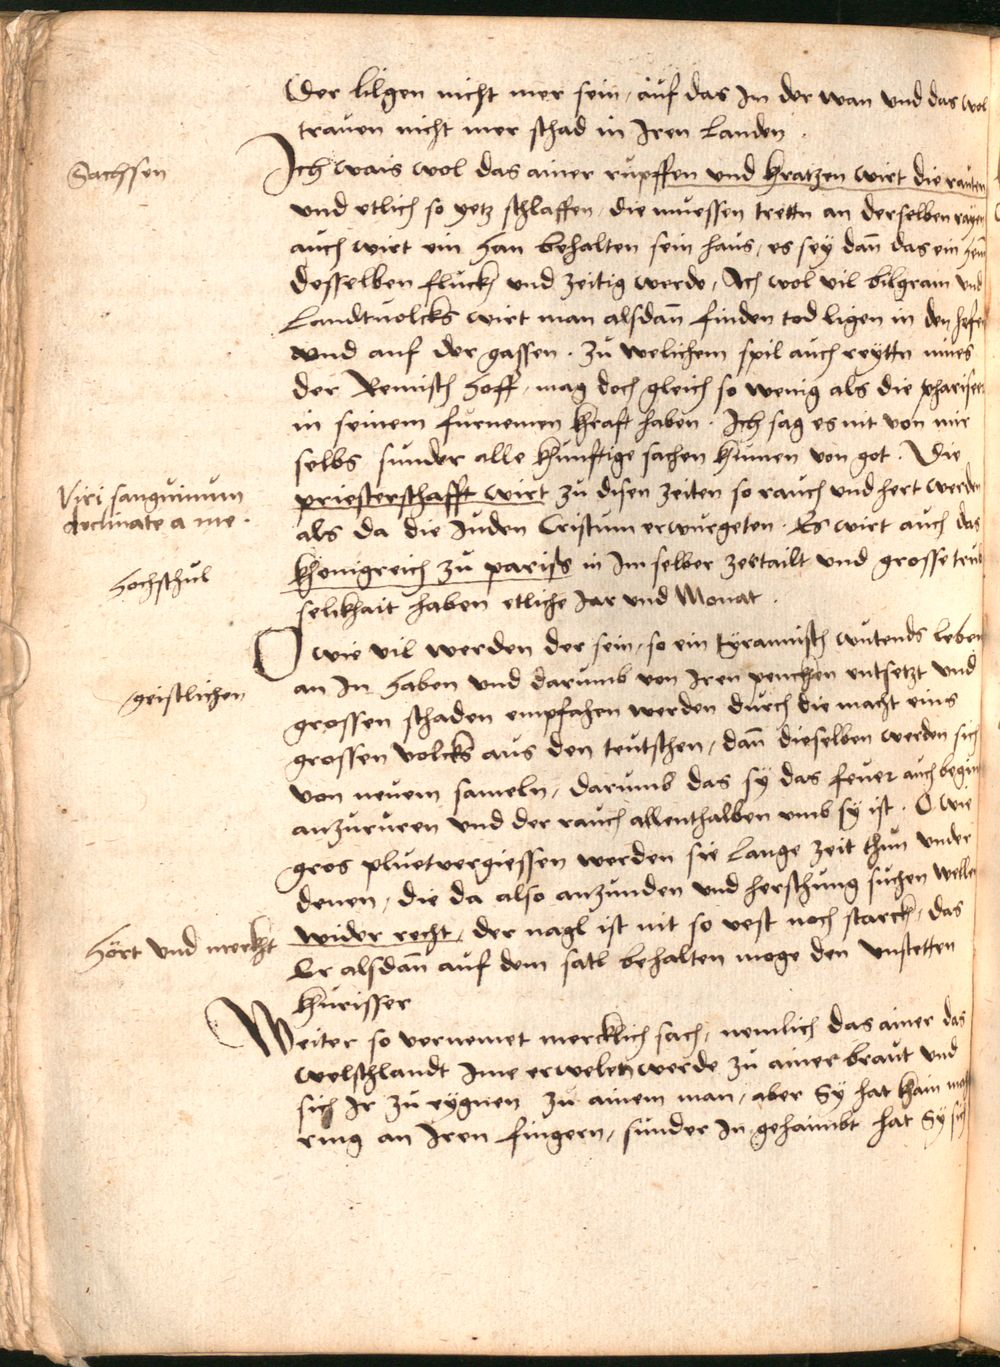 Der lilgen nicht mer sein, auf das Im der wan und das wol
trauen nicht mer schad in Iren Landen.
Sachsen
Ich wais wol das ainer rupffen und kratzen wirt die rauten
und etlich so yetz schlaffen, die muessen trettn an derselben rayen
auch wirt ein han behalten sein haus, es sey dan̄ das ein
desselben fluck und zeitig werde, Ach wol vil bilgram und
Landtvolcks wirt man alsdan̄ finden tod ligen in den
und auf der gassen. zu welichem spil auch reyttn
der Remisch hoff, mag doch gleich so wenig als die phariseer
in seinem furnemen kraft haben. Ich sag es nit von mir
selbs sunder alle kunftige sachen kumen von got. Die
Viri sanguinum
declinate a me.
priesterschafft wirt zu disen zeiten so rauch und hert werden
als da die Iuden Cristum erwurgeten. Es wirt auch das
hochschul
khonigreich zu pariss in Im selber zertailt und grosse trub
selikhait haben etliche Iar und Monat.
O wie vil werden der sein, so ein tyrannisch wutends leben
geistlichen
an In haben und darumb von Iren pencken entsetzt und
grossen schaden empfahen werden durch die macht eins
grossen volcks aus den teutschen, dan̄ dieselben werden sich
von neuem sameln, darumb das sy das feuer auch
anzururen und der rauch allenthalben umb sy ist. O wie
gros pluetvergiessen werden sie lange zeit thun under
denen, die da also anzunden und herschung suchen wellen
hört und merckht
wider recht, der nagl ist nit so vest noch starck, das
Er alsdan̄ auf dem satl behalten moge den unstetten
kurisser
Weiter so vernemet mercklich sach, nemlich das ainer das
welschlandt Ime erwelen werde zu ainer braut und
sich Ir zu eygnen zu ainem man, aber Sy hat kain
ring an Iren fingern, sunder In gehaimbt hat Sy sich